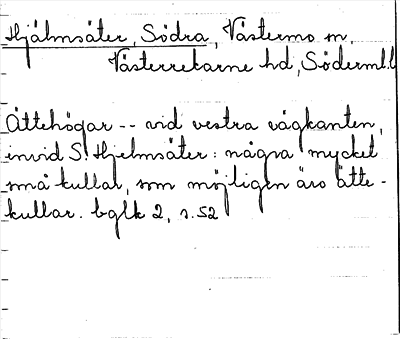 Hjälmsäter, Södra, Västermo sn.
Västerrekarne hd, Söderml.l
Ättehögar -- vid vestra vägkanten,
invid S. Hjelmsäter: några mycket
små kullar, som möjligen äro ätte-
kullar. bglk 2, s. 52